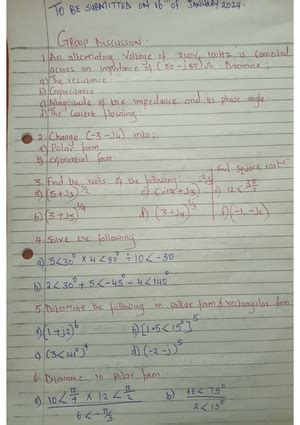 TO BE SUBMITTED ON 16TH OF JANUARY 2024.
GROUP DISCUSSION
1. An alternating voltage of 240V, 100HZ is connected
across an impedance of (50 - j80)Ω. Determine;
a) The resistance
b) Capacitance
c) Magnitude of the impedance and its phase angle
d) The current flowing.
2. Change (-3 - J4) into;
a) Polar form
b) exponential form.
3. Find the roots of the following:
Find square roots
a) (5+J3)^1/2 c) (-17+J3)^-2/3 e) 12<3π/2
b) (3+J5)^1/4 d) (3+J4)^1/3 f) (-1,-J2)
4. Solve the following
a) 3<30° × 4<80° ÷ 10<-30
b) 2<30° + 5<-45° - 4<140°
5. Determine the following in polar form & rectangular form
a) (1+j2)^6 b) [1.5<15°]^5
c) (3<41°)^4 d) (-2-j)^5
6. Determine in polar form.
a) 10<π/4 × 12<π/2 b) 16<75°
6<-π/3 2<15°